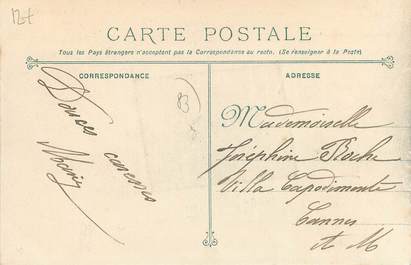 12+
CARTE POSTALE
Tous les Pays étrangers n'acceptent pas la Correspondance au recto. (Se renseigner à la Poste)
CORRESPONDANCE
ADRESSE
Douces caresses
Mademoiselle
Joséphine Roche
Villa Capodimonte
Cannes
A M